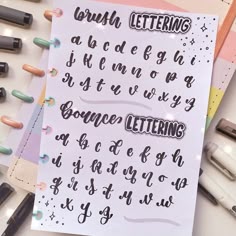 brush LETTERING
a b c d e f g h i
j k l m n o p q
r s t u v w x y z
Bounce LETTERING
a b c d e f g h
i j k l m n o p
q r s t u v w
x y z